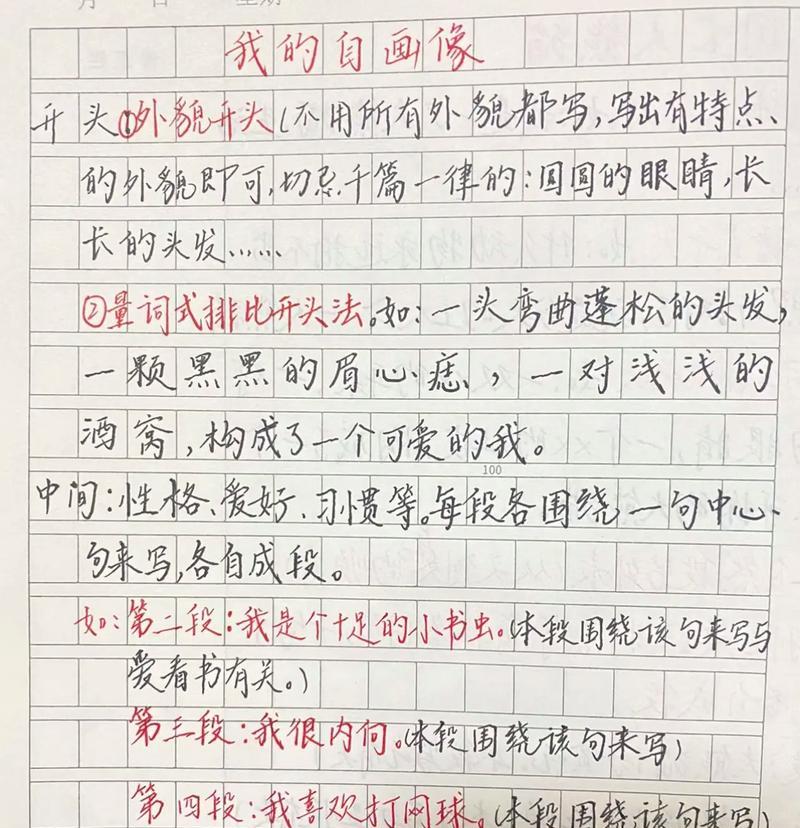 我的自画像
开头①外貌开头(不用所有外貌都写,写出有特点、
的外貌即可,切忌千篇一律的:圆圆的眼睛,长
长的头发……
②量词式排比开头法。如:一头弯曲蓬松的头发,
一颗黑黑的眉心痣,一对浅浅的
酒窝,构成了一个可爱的我。
100
中间:性格、爱好、习惯等。每段各围绕一句中心、
句来写,各自成段。
如:第二段:我是个十足的小书虫。(本段围绕该句来写与
爱看书有关。)
第三段:我很内向。(本段围绕该句来写)
第四段:我喜欢打网球。(本段围绕该句来写)